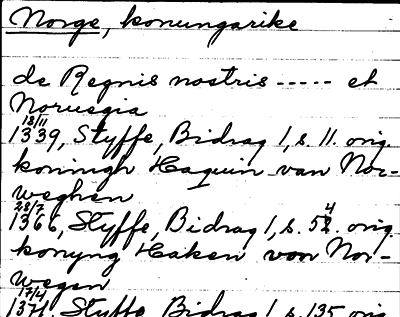 Norge, konungarike
de Regnis nostris ----- et
Noruegia
18/11
1339, Styffe, Bidrag 1, s. 11. orig.
koningh Haquin van Nor-
weghen
28/7
1366, Styffe, Bidrag 1, s. 54. orig.
konyng Haken von Nor-
wegen
17/4
1371, Styffe, Bidrag 1, s. 135 orig